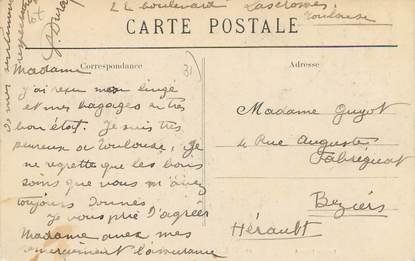 22 boulevard Lascrosses
Toulouse
CARTE POSTALE
Correspondance
Adresse
31
Madame
J'ai reçu mon linge
et mes bagages en très
bon état. Je suis très
heureux de Toulouse, je
ne regrette que les bons
soins que vous m'avez
toujours donnés
Je vous prie d'agréer
Madame avec mes
remerciements l'assurance
de mes sentiments
respectueux
Madame Guyot
4 Rue Auguste
Fabrégat
Beziérs
Hérault